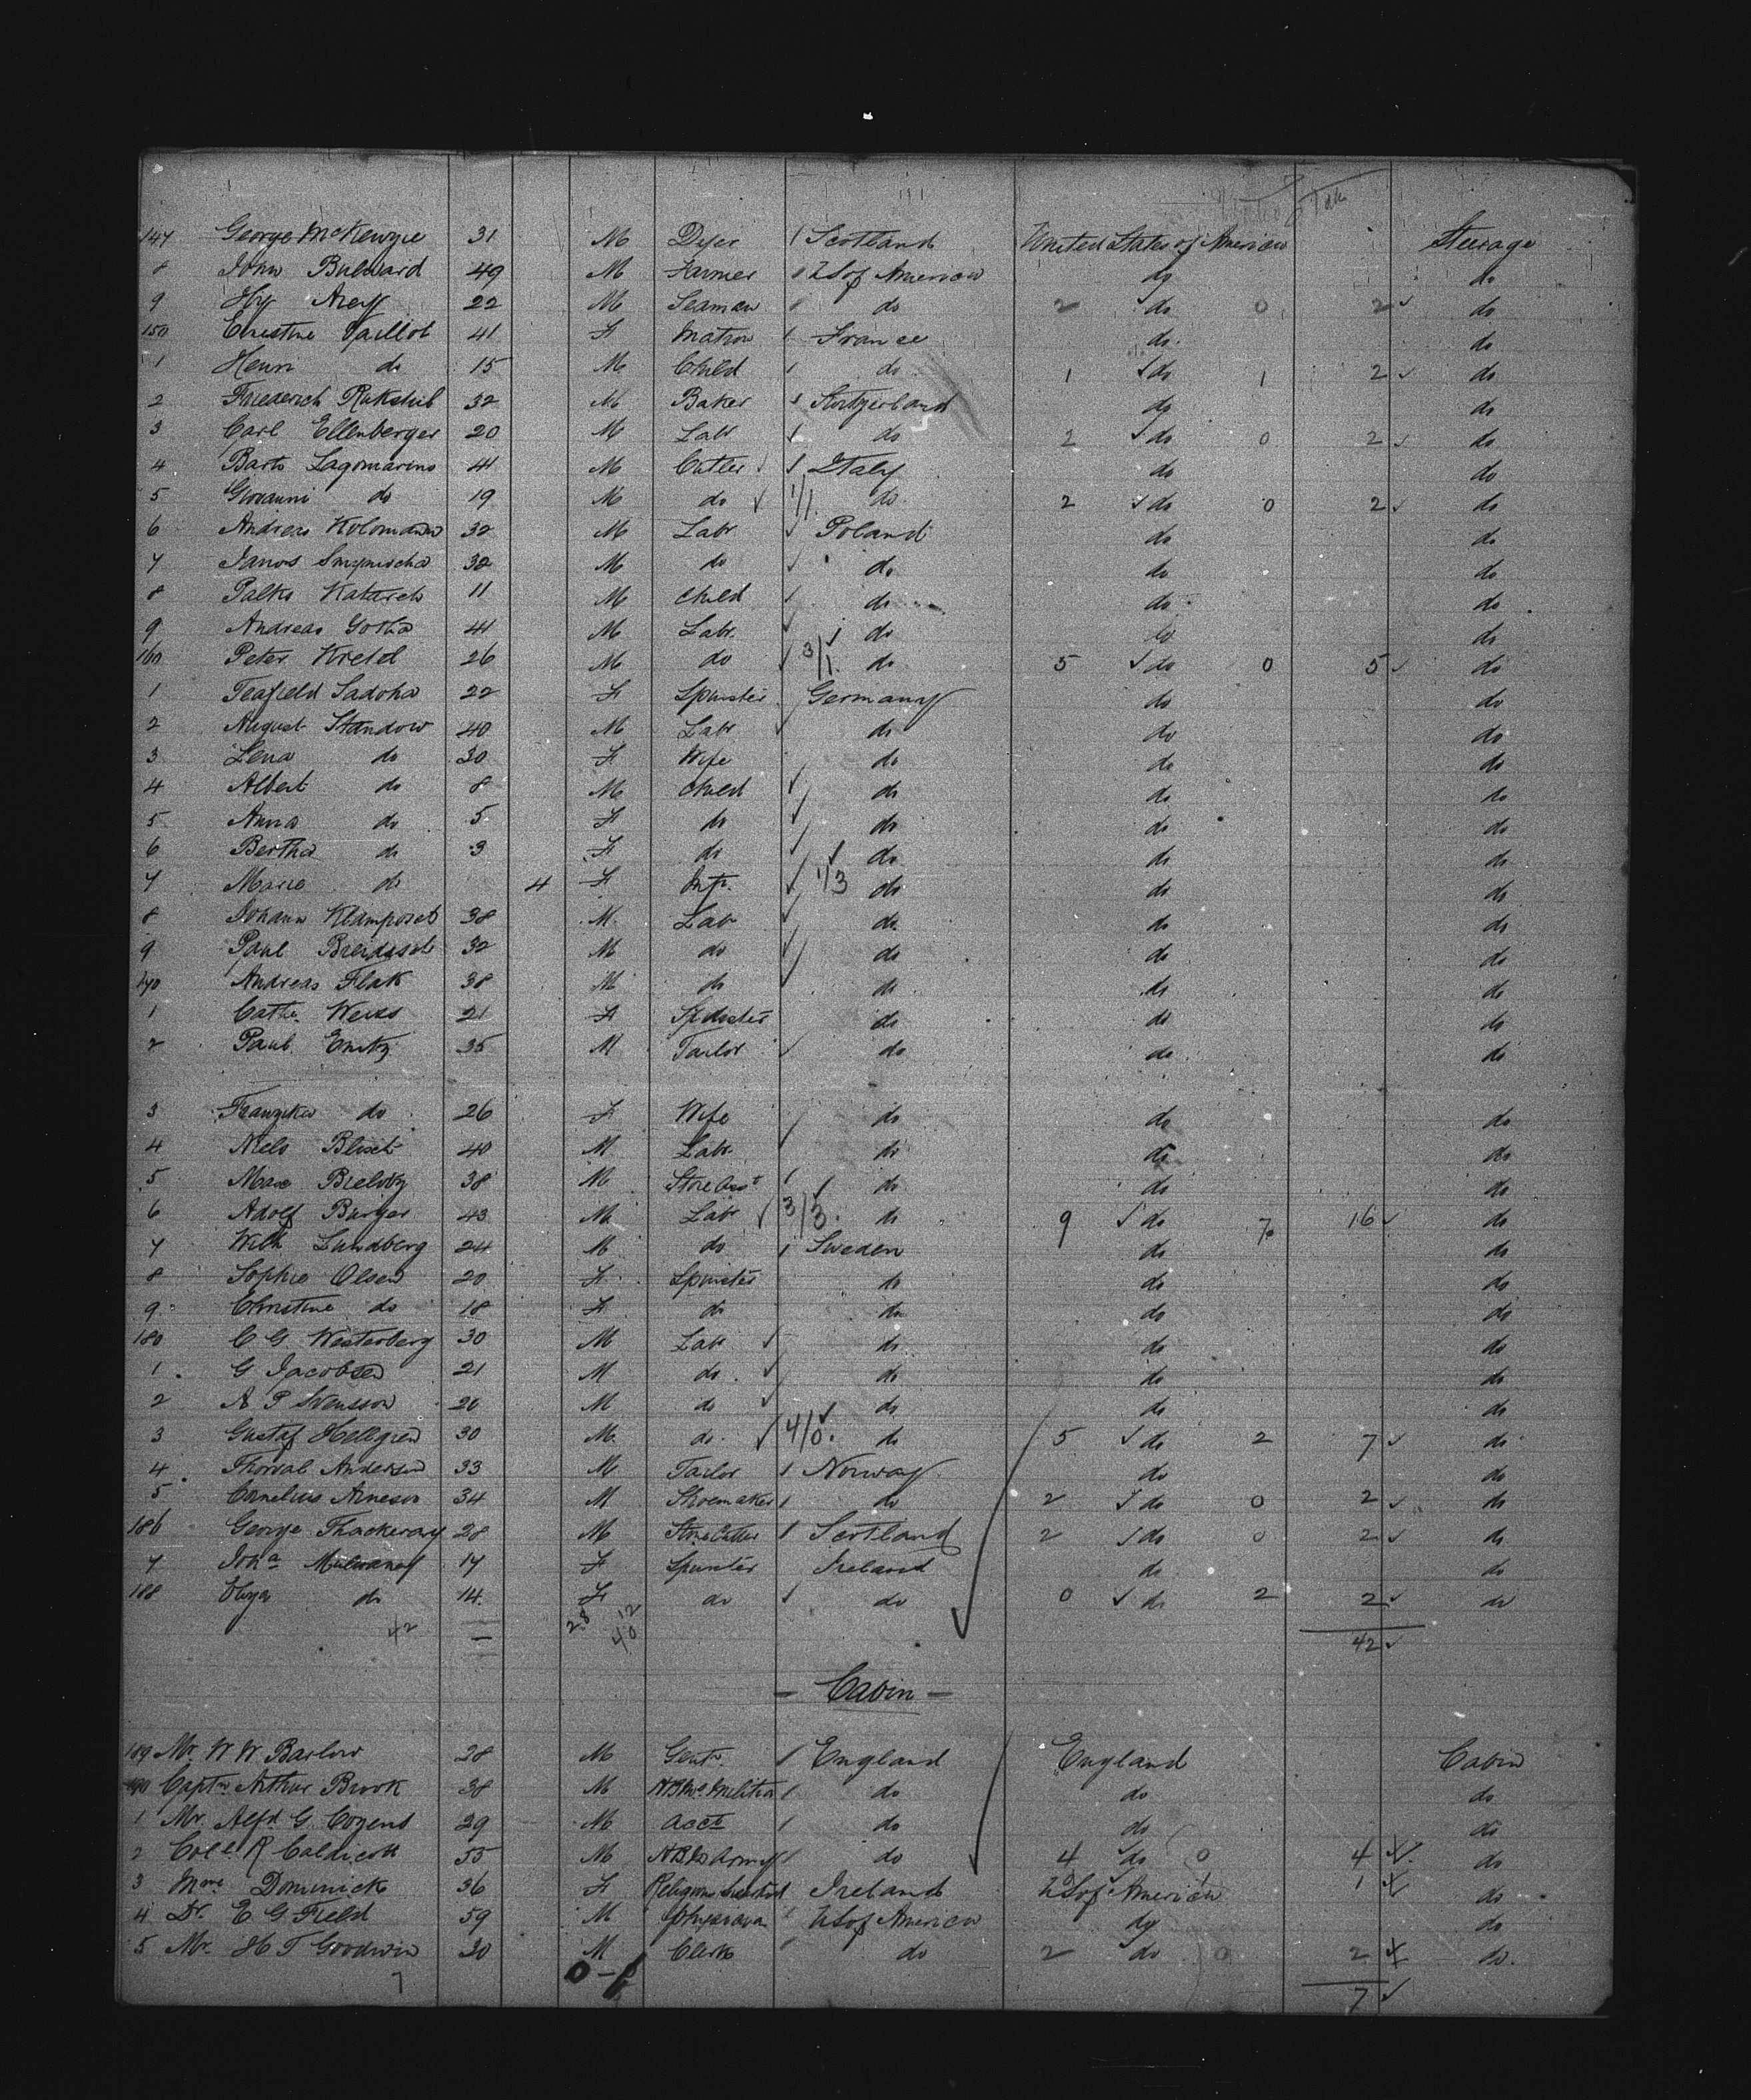 147 George McKenzie 31 M Dyer 1 Scotland United States of America Steerage
8 John Bulward 49 M Farmer US of America do do
9 Hy Arey 22 M Seaman do 2 do 0 2 do
150 Ernestine Vaillot 41 F Matron France do do
1 Henri do 15 M Child do 1 do 1 2 do
2 Friederich 32 M Baker Switzerland do do
3 Carl Ellenberger 20 M Labr do 2 do 0 2 do
4 Barto Lagomarino 41 M Cutler Italy do do
5 Giovanni do 19 M do 1/1 do 2 do 0 2 do
6 Andreas Kolomann 32 M Labr Poland do do
7 Janos 32 M do do do do
8 Palko 11 M Child do do do
9 Andreas Gotha 41 M Labr do do do
160 Peter 26 M do 3/1 do 5 do 0 5 do
1 Sadoha 22 F Spinster Germany do do
2 August Standow 40 M Labr do do do
3 Lena do 30 F Wife do do do
4 Albert do 8 M Child do do do
5 Anna do 5 F do do do do
6 Bertha do 3 F do do do do
7 Marie do 4 F Inft. 1/3 do do do
8 Johann 38 M Labr do do do
9 Paul 32 M do do do do
170 Andreas Flak 38 M do do do do
1 Cathe. Weiss 21 F Spinster do do do
2 Paul Enitz 35 M Tailor do do do
3 Franzika do 26 F Wife do do do
4 Niels 40 M Labr do do do
5 Max 38 M Store Asst do do do
6 Adolf Burger 43 M Labr 3/3 do 9 do 7 16 do
7 Wilh Lundberg 24 M do Sweden do do
8 Sophie Olsen 20 F Spinster do do do
9 Christine do 18 F do do do do
180 C G Westerberg 30 M Labr do do do
1 G Jacobsen 21 M do do do do
2 A P Svensson 20 M do do do do
3 Gustaf Hellgren 30 M do 4/0 do 5 do 2 7 do
4 Thorval Andersen 33 M Tailor Norway do do
5 Cornelius Arneson 34 M Shoemaker do 2 do 0 2 do
186 George Thackeray 28 M Stone Cutter Scotland 2 do 0 2 do
7 Mulvaney 17 F Spinster Ireland do do
188 do 14 F do do 0 do 2 2 do
42 28 12 40 42
— Cabin —
189 Mr. W W Barlow 28 M Gentn. England England Cabin
190 Captn Arthur Brook 38 M HBMs Militia do do do
1 Mr. Alfd. G. Cozens 29 M Acct do do do
2 Coll. R Caldicott 55 M HBMs Army do 4 do 0 4 do
3 Mme Dominick 36 F Religious Ireland US of America 1 do
4 Dr. E. G. Field 59 M Physician US of America do do
5 Mr. H T Goodwin 20 M Clerk do 2 do 0 2 do
7 7